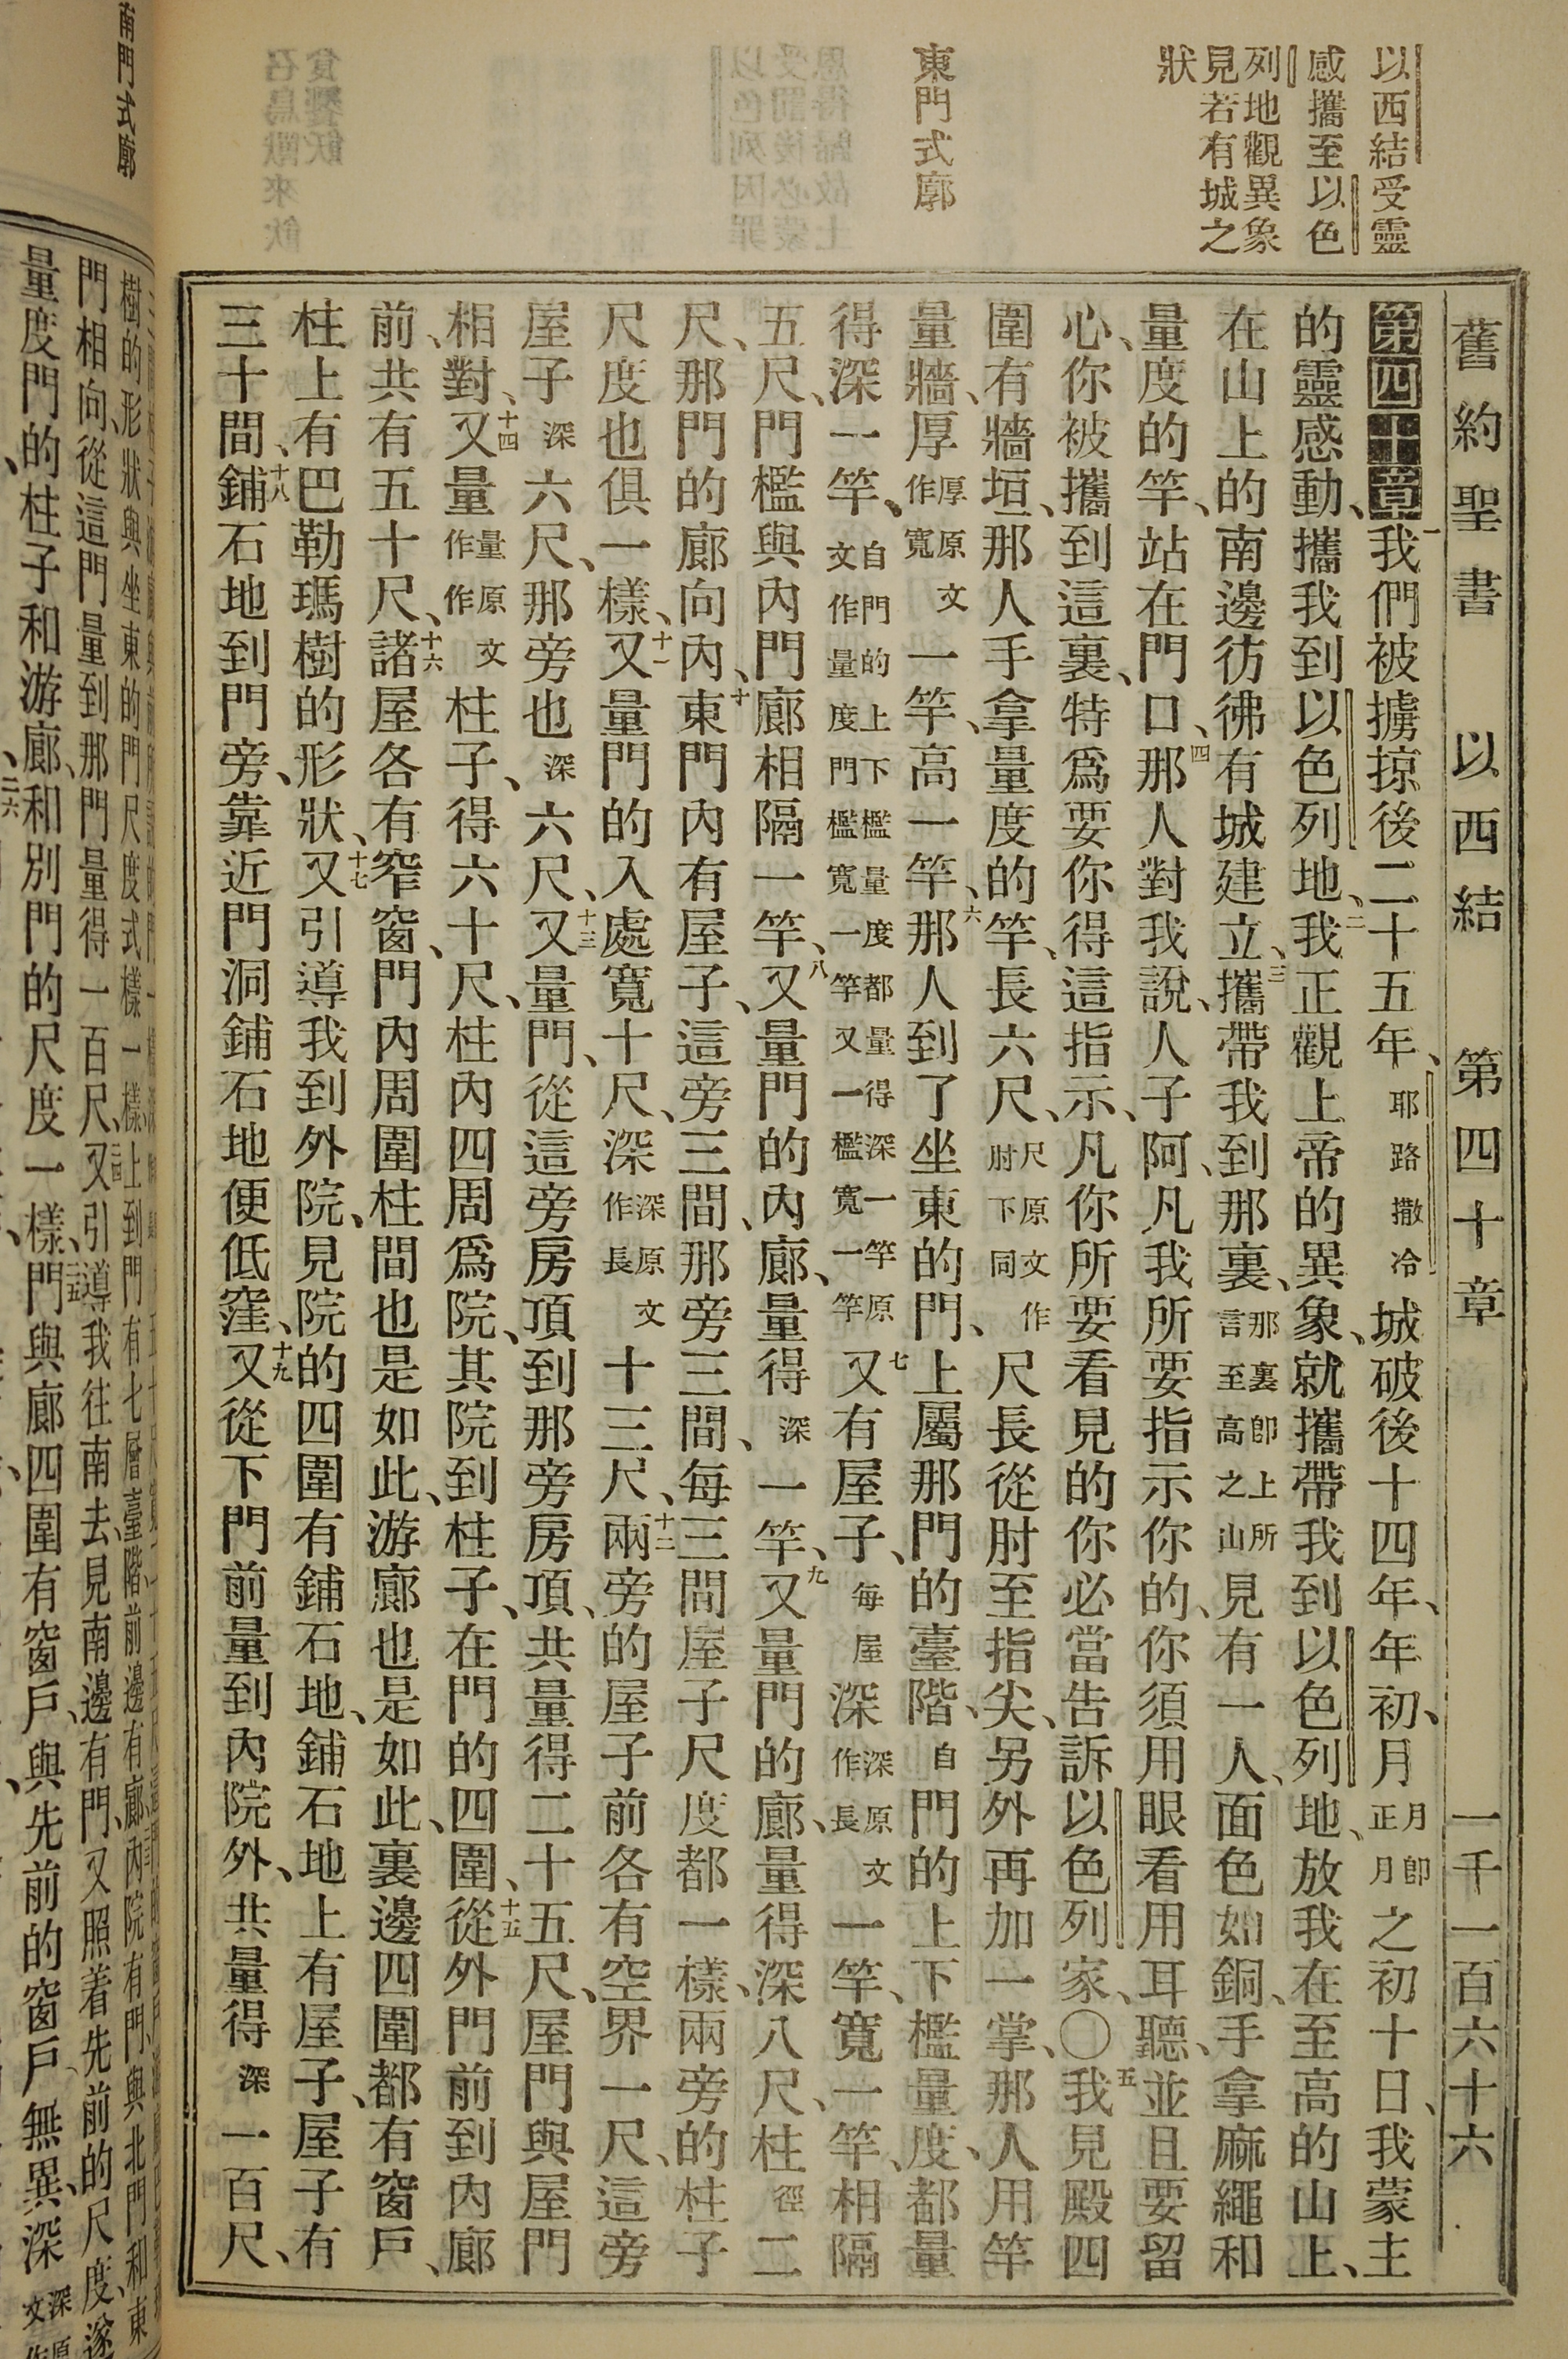 以西結受靈
感攜至以色
列地觀異象
見若有城之
狀
東門式廓
舊約聖書 以西結 第四十章 一千一百六十六
第四十章一我們被擄掠後二十五年、耶路撒冷城破後十四年、年初、月月卽正月之初十日、我蒙主
的靈感動、攜我到以色列地、二我正觀上帝的異象、就攜帶我到以色列地、放我在至高的山上、
在山上的南邊彷彿有城建立、三攜帶我到那裏、那裏卽上所言至高之山見有一人、面色如銅、手拿麻繩和
量度的竿、站在門口、四那人對我說、人子阿、凡我所要指示你的、你須用眼看用耳聽、並且要留
心、你被攜到這裏、特爲要你得這指示、凡你所要看見的你必當告訴以色列家、〇五我見殿四
圍有牆垣、那人手拿量度的竿、長六尺、尺原文作肘下同尺長從肘至指尖、另外再加一掌、那人用竿
量牆、厚厚原文作寬一竿、高一竿、六那人到了坐東的門、上屬那門的臺階、自門的上下檻量度、都量
得深一竿、自門的上下檻量度都量得深一竿原文作量度門檻寬一竿又一檻寬一竿七又有屋子、每屋深深原文作長一竿、寬一竿、相隔
五尺、門檻與內門廊相隔一竿、八又量門的內廊、量得深一竿、九又量門的廊、量得深八尺、柱徑二
尺、那門的廊向內、十東門內有屋子、這旁三間、那旁三間、每三間屋子尺度都一樣、兩旁的柱子
尺度也俱一樣、十一又量門的入處寬十尺、深深原文作長十三尺、十二兩旁的屋子前各有空界一尺、這旁
屋子深六尺、那旁也深六尺、十三又量門、從這旁房頂到那旁房頂、共量得二十五尺、屋門與屋門
相對、十四又量量原文作作柱子、得六十尺、柱內四周爲院、其院到柱子、在門的四圍、十五從外門前到內廊
前、共有五十尺、十六諸屋各有窄窗、門內周圍柱間也是如此、游廊也是如此、裏邊四圍都有窗戶、
柱上有巴勒瑪樹的形狀、十七又引導我到外院、見院的四圍有鋪石地、鋪石地上有屋子、屋子有
三十間、十八鋪石地到門旁、靠近門洞鋪石地便低窪、十九又從下門前量到內院外、共量得深一百尺、
南門式廓
門相向、從這門量到那門、量得一百尺、又引導我往南去、見南邊有門、又照着先前的尺度、遂
量度門的柱子和游廊、二六和別門的尺度一樣、門與廊四圍有窗戶、與先前的窗戶無異、深